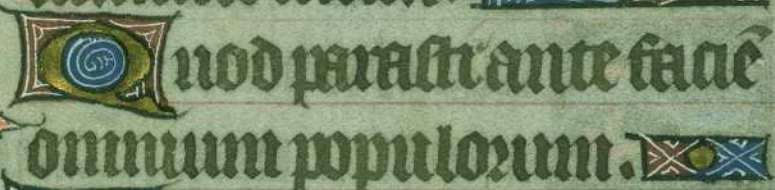 Quod parasti ante faciē
omnium populorum.